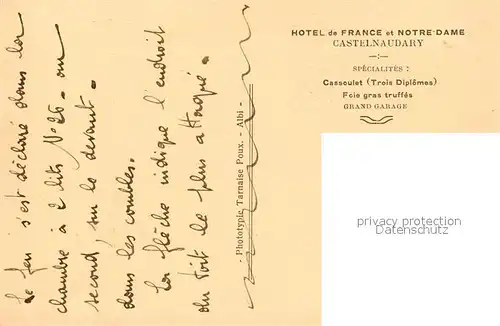 Le feu s'est déclaré dans la
chambre à 2 lits No 26 - au
second, sur le devant.
dans les combles.
La flèche indique l'endroit
du toit le plus attaqué.
Phototypie Tarnaise Poux. - Albi -
HOTEL de FRANCE et NOTRE-DAME
CASTELNAUDARY
SPÉCIALITÉS :
Cassoulet (Trois Diplômes)
Foie gras truffés
GRAND GARAGE
privacy protection
AnsichtskartenVersand.com